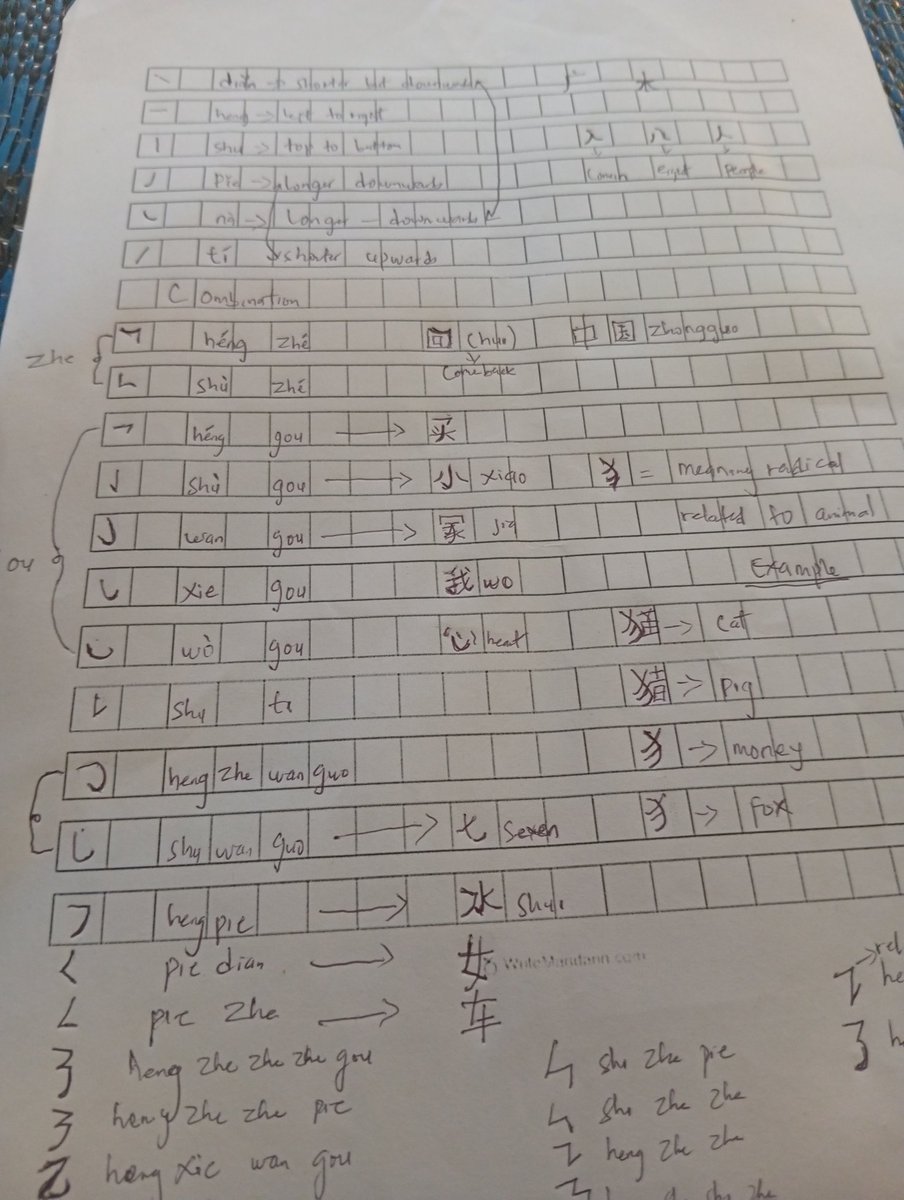 丶 diǎn → shorter but downwards
一 heng → left to right
丨 shu → top to button
丿 Pie → Longer downwards
㇏ nà → Longer — downwards
㇀ tí shorter upwards
人 八 人
eight people
Combination
zhe
𠃍 héng zhé 回 (hui) 中 国 zhongguo
come back
𠃊 shù zhé
乛 héng gou → 买
亅 shù gou → 小 xiao 犭 = meaning radical
㇁ wan gou → 家 jia related to animal
㇂ xie gou 我 wo Example
㇃ wò gou 心 heart 猫 → cat
𠄌 shu ti 猪 → pig
heng zhe wan guo 犭 → monkey
乚 shu wan guo → 七 seven 犭 → Fox
㇇ heng pie → 水 shui
WriteMandarin.com
𡿨 pie dian → 女
𠃋 pie zhe → 车
㇡ heng zhe zhe zhe gou
㇋ heng zhe zhe pie
乙 heng xie wan gou
ㄣ shu zhe pie
ㄣ shu zhe zhe
heng zhe zhe